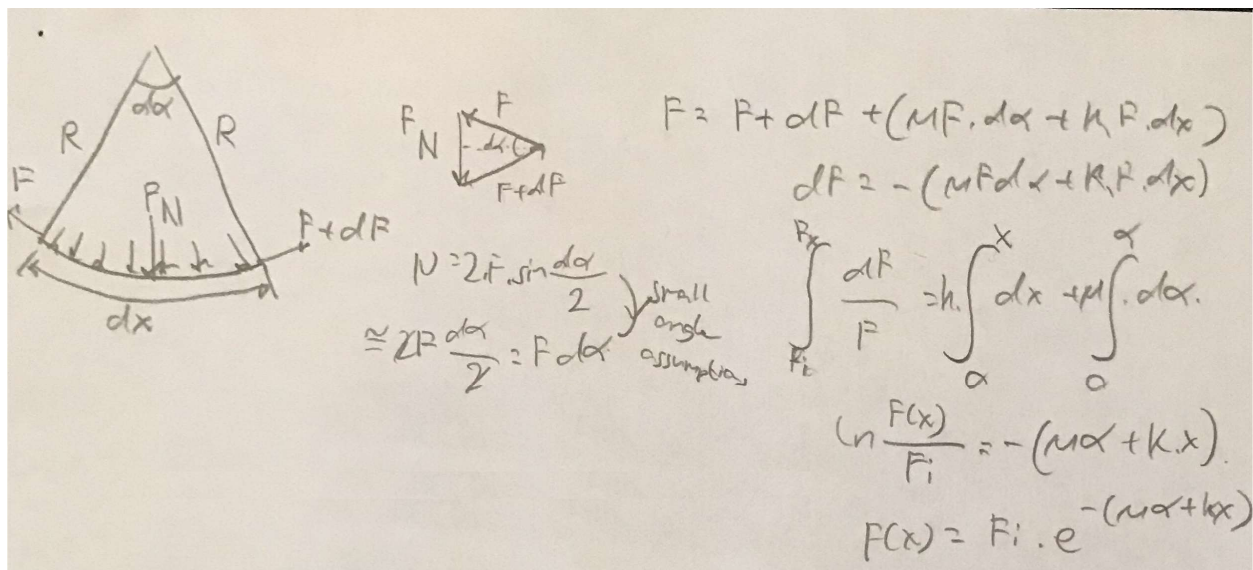 dα
R
R
F
F_N
F+dF
dx
F
F_N
dα
F+dF
N = 2.F.sin dα/2
≅ 2F dα/2 = F dα
small
angle
assumption
F = F + dF + (μF.dα + k.F.dx)
dF = -(μFdα + k.F.dx)
∫_{Fi}^{Fx} dF/F = k.∫_{0}^{x} dx + μ∫_{0}^{α}.dα.
ln F(x)/Fi = -(μα + k.x).
F(x) = Fi . e^{-(μα+kx)}